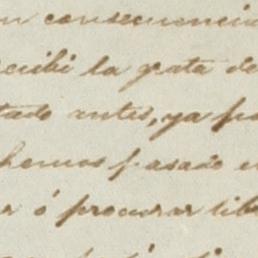 en consecuencia
recibi la grata de
tado antes, ya
hemos pasado
ó procurar